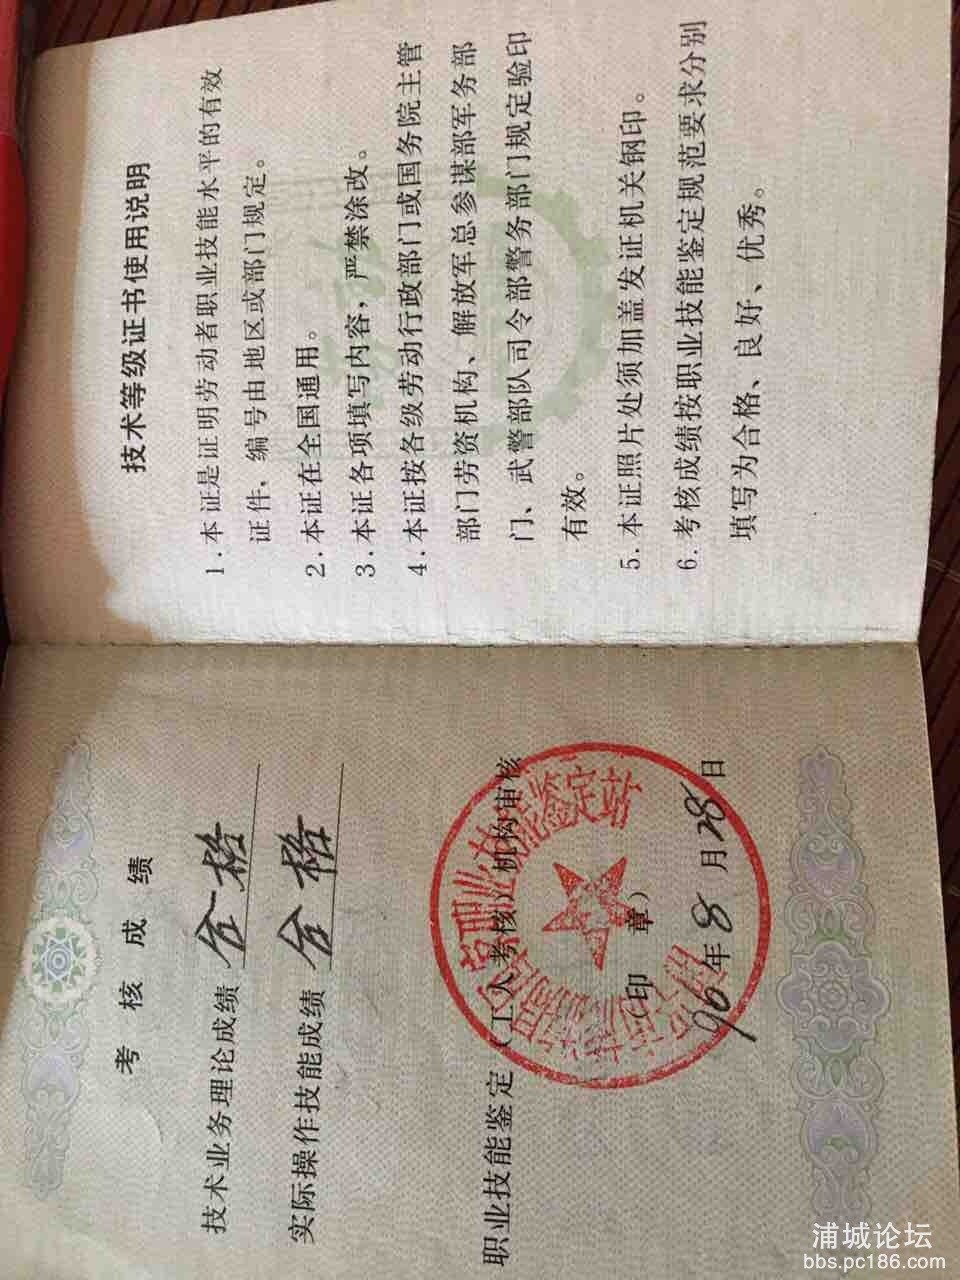 考核成绩
技术业务理论成绩 合格
实际操作技能成绩 合格
职业技能鉴定（工人考核）机构审核
（印 章）
96年8月28日
技术等级证书使用说明
1.本证是证明劳动者职业技能水平的有效
证件，编号由地区或部门规定。
2.本证在全国通用。
3.本证各项填写内容，严禁涂改。
4.本证按各级劳动行政部门或国务院主管
部门劳资机构、解放军总参谋部军务部
门、武警部队司令部警务部门规定验印
有效。
5.本证照片处须加盖发证机关钢印。
6.考核成绩按职业技能鉴定规范要求分别
填写为合格、良好、优秀。
浦城论坛
bbs.pc186.com